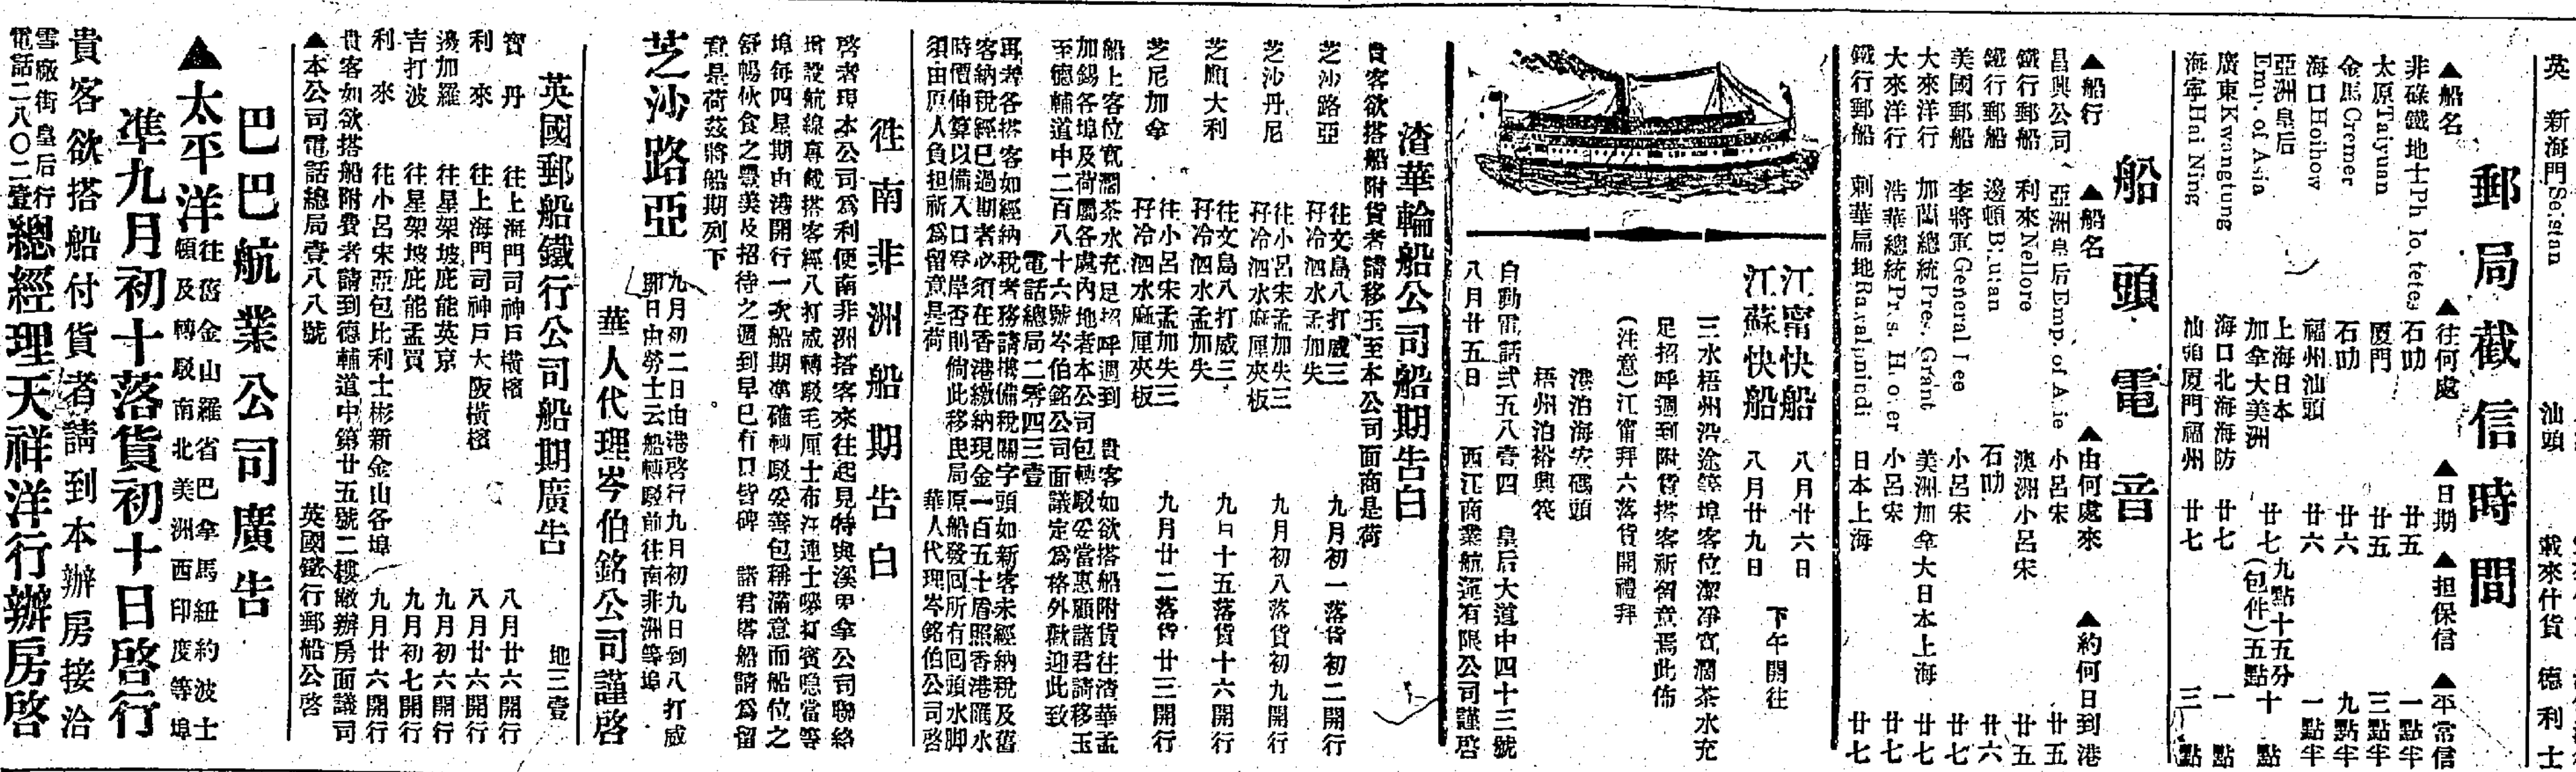 英　新海門Seistan　汕頭　載來什貨　德利士
郵局截信時間
▲船名　▲往何處　▲日期　▲担保信　▲平常信
非碌鐵地士　石叻　廿五　一點半
太原Taiyuan　厦門　廿五　三點半
金馬Cremer　石叻　廿六　九點半
海口Hoihow　福州汕頭　廿六　一點半
亞洲皇后Emp. of Asia　上海日本加拿大美洲　廿七　九點十五分(包件)五點　十點
廣東Kwangtung　海口北海海防　廿七　一點
海寧Hai Ning　汕頭厦門福州　廿七　三點
船頭電音
▲船行　▲船名　▲由何處來　▲約何日到港
昌興公司　亞洲皇后Emp. of Asie　小呂宋　廿五
鐵行郵船　利來Nellore　澳洲小呂宋　廿五
鐵行郵船　邊頓Bhutan　石叻　廿六
美國郵船　李將軍General Lee　小呂宋　廿七
大來洋行　加蘭總統Pres. Grant　美洲加拿大日本上海
大來洋行　浩華總統Pres. Hoover　小呂宋　廿七
鐵行郵船　剌華扁地Rawalpindi　日本上海　廿七
江甯快船　八月廿六日
江蘇快船　八月廿九日　下午開往
三水梧州沿途等埠客位潔凈寬濶茶水充
足招呼週到附貨搭客祈留意焉此佈
(注意)江甯拜六落貨開禮拜
港泊海安碼頭
梧州泊裕興棧
自動電話弍五八壹四　皇后大道中四十三號
八月廿五日　西江商業航運有限公司謹啓
渣華輪船公司船期告白
貴客欲搭船附貨者請移玉至本公司面商是荷
芝沙路亞　往文島八打威三孖冷泗水孟加失　九月初一落貨初二開行
芝沙丹尼　往小呂宋孟加失三孖冷泗水麻厘夾板　九月初八落貨初九開行
芝順大利　往文島八打威三孖冷泗水孟加失　九月十五落貨十六開行
芝尼加拿　往小呂宋孟加失三孖冷泗水麻厘夾板　九月廿二落貨廿三開行
船上客位寬濶茶水充足招呼週到　貴客如欲搭船附貨往渣華孟
加錫各埠及荷屬各處內地者本公司包轉駁妥當惠顧諸君請移玉
至德輔道中二百八十六號岑伯銘公司面議定爲格外歡迎此致
電話總局二零四三壹
再者各搭客如經納稅者務請携備稅關字頭如新客未經納稅及舊
客納稅經已過期者必須在香港繳納現金一百五十盾照香港匯水
時價伸算以備入口登岸否則倘此移民局原船發回所有回頭水脚
須由原人負担祈爲留意是荷　華人代理岑銘伯公司啓
往南非洲船期告白
啓者現本公司爲利便南非洲搭客來往起見特與溪甲拿公司聯絡
增設航線專載搭客經八打威轉駁毛厘士布汪連士孻打賓噫當等
埠每四星期由港開行一次船期準確轉駁妥善包稱滿意而船位之
舒暢伙食之豐美及招待之週到早已有口皆碑　諸君搭船請爲留
意是荷茲將船期列下
芝沙路亞　九月初二日由港啓行九月初九日到八打威
即日由勞士云船轉駁前往南非洲等埠
華人代理岑伯銘公司謹啓
英國郵船鐵行公司船期廣告　地三壹
寶丹　往上海門司神戶橫檳　八月廿六開行
利來　往上海門司神戶大阪橫檳　八月廿六開行
邊加羅　往星架坡庇能英京　九月初六開行
吉打波　往星架坡庇能孟買　九月初七開行
利來　往小呂宋亞包比利士彬新金山各埠　九月廿六開行
貴客如欲搭船附費者請到德輔道中第廿五號二樓敝辦房面議司
▲本公司電話總局壹八八號　英國鐵行郵船公啓
巴巴航業公司廣告
▲太平洋　往舊金山羅省巴拿馬紐約波士
頓及轉駁南北美洲西印度等埠
準九月初十落貨初十日啓行
貴客欲搭船付貨者請到本辦房接洽
雪廠街皇后行
電話二八〇二壹　總經理天祥洋行辦房啓